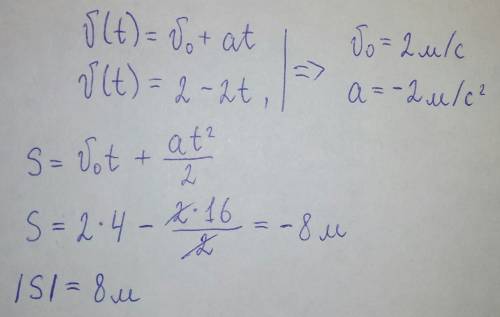 v(t) = v₀ + at
v(t) = 2 - 2t, | => v₀ = 2 м/с
a = -2 м/с²
S = v₀t + at²/2
S = 2·4 - 2·16/2 = -8 м
|S| = 8 м